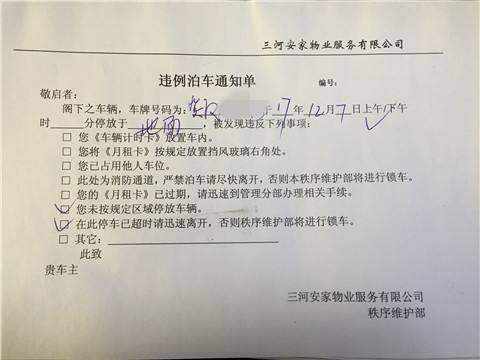 三河安家物业服务有限公司
违例泊车通知单 编号:
敬启者:
阁下之车辆,车牌号码为: 于17年12月7日上午/下午
时 分停放于 地面 ,被发现违反下列事项:
□ 您《车辆计时卡》放置车内。
□ 您将《月租卡》按规定放置挡风玻璃右角处。
□ 您已占用他人车位。
□ 此处为消防通道,严禁泊车请尽快离开,否则本秩序维护部将进行锁车。
□ 您的《月租卡》己过期,请迅速到管理分部办理相关手续。
□ 您未按规定区域停放车辆。
□ 在此停车已超时请迅速离开,否则秩序维护部将进行锁车。
□ 其它:
此致
贵车主
三河安家物业服务有限公司
秩序维护部